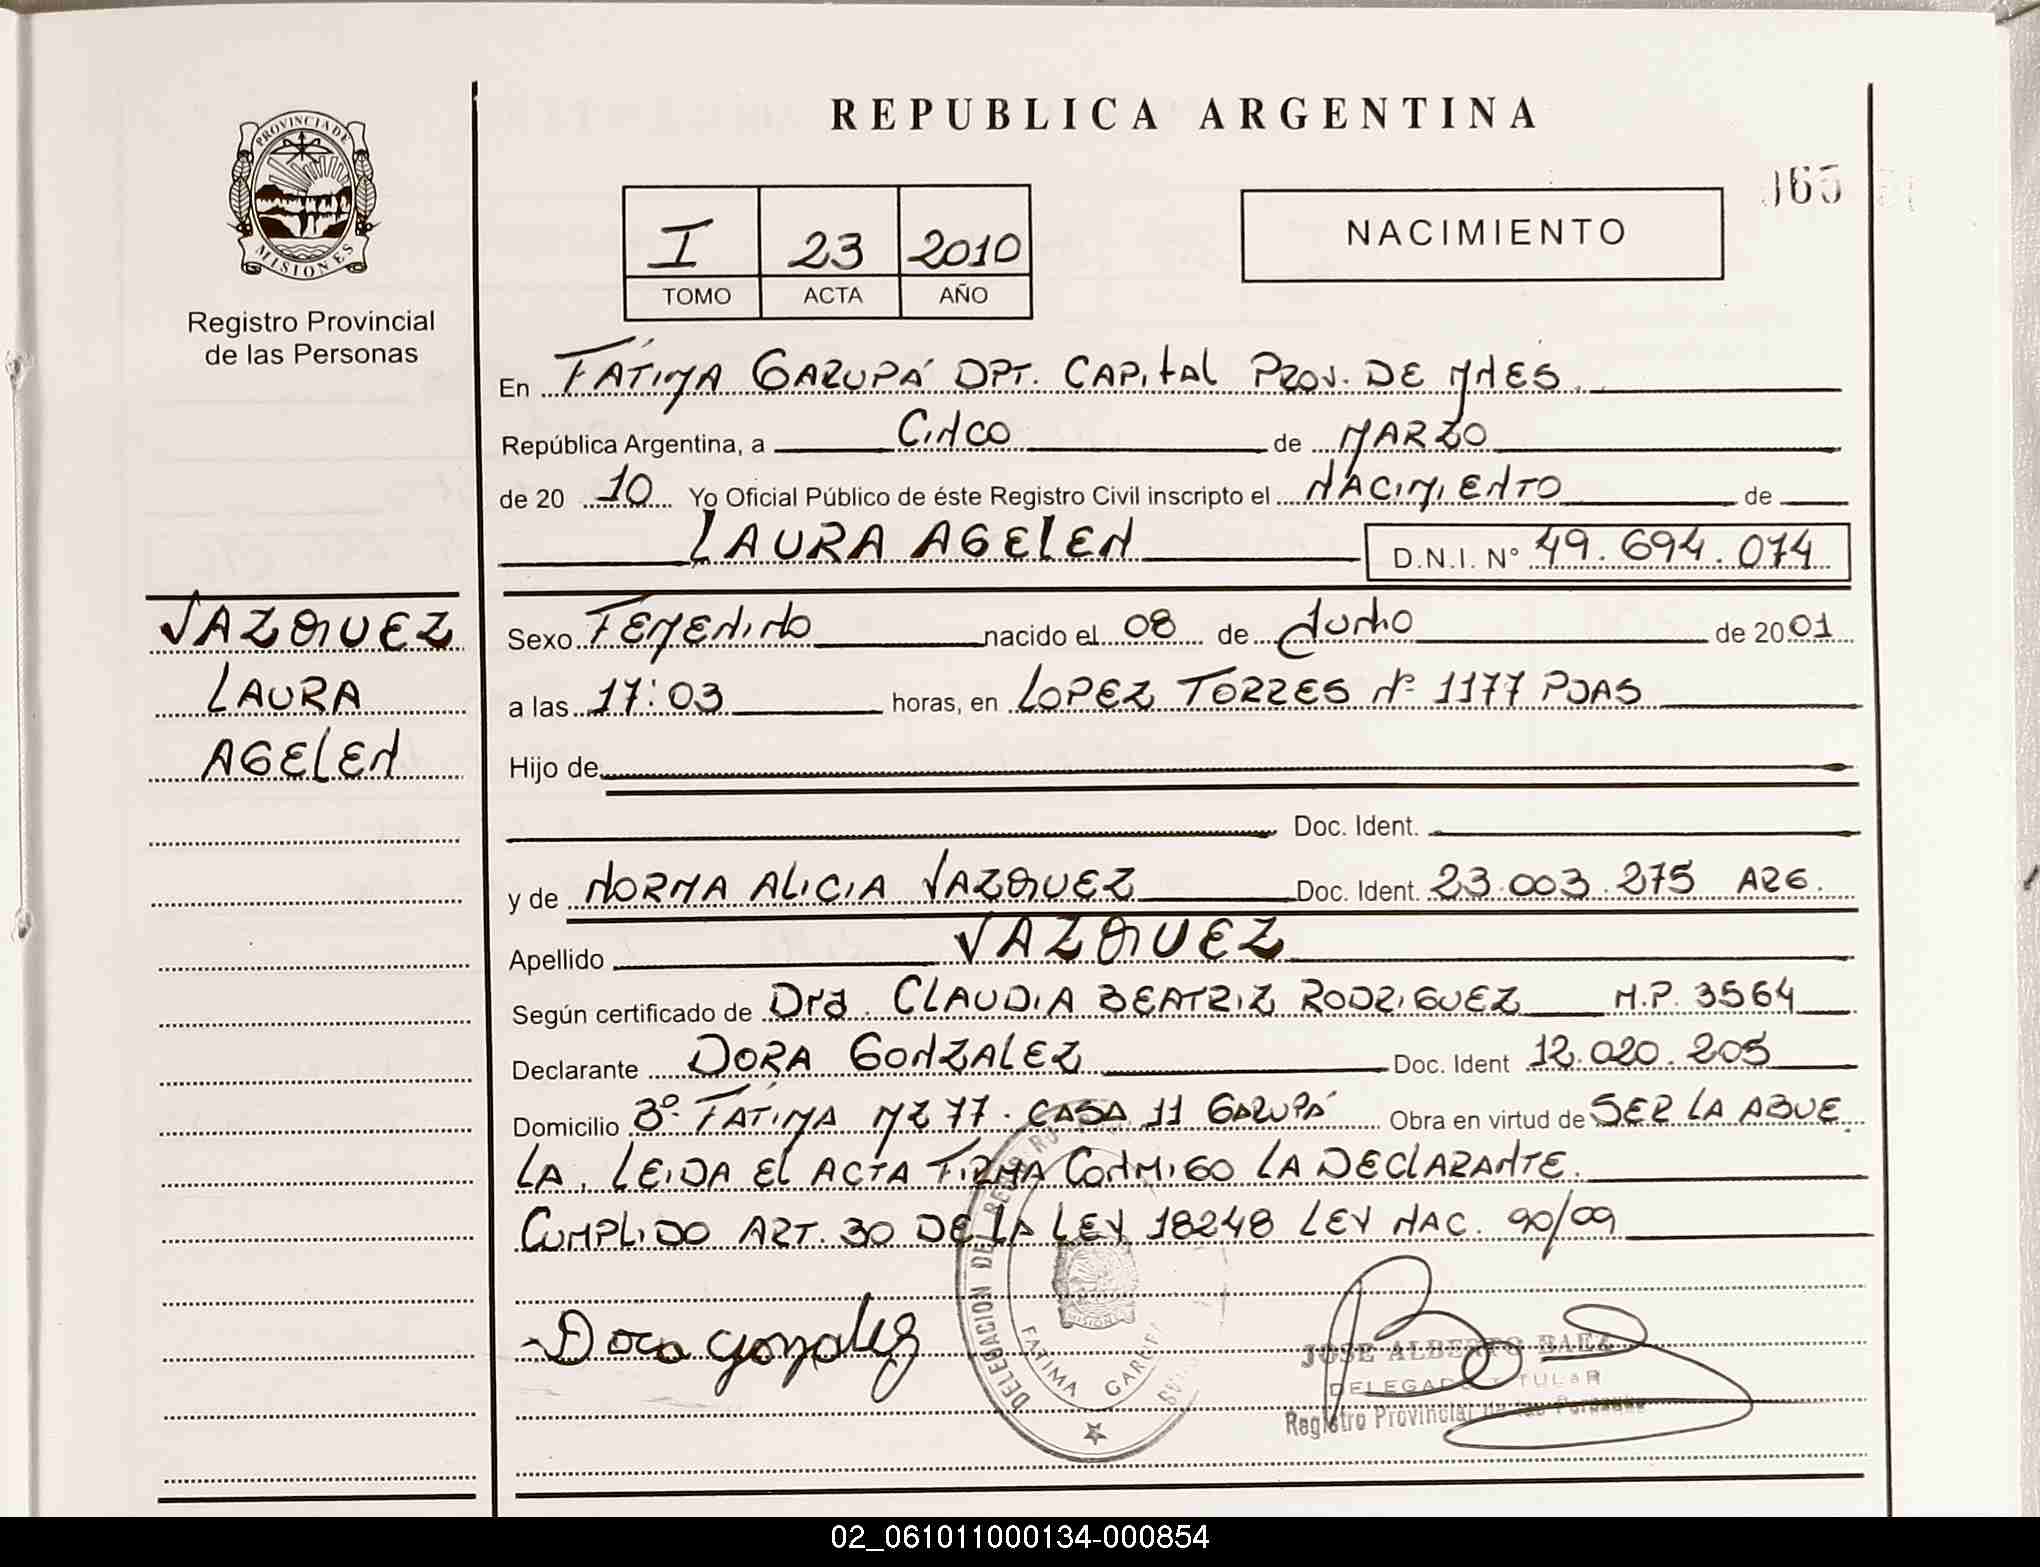 REPUBLICA ARGENTINA
PROVINCIA DE
MISIONES
Registro Provincial
de las Personas
I 23 2010
TOMO ACTA AÑO
NACIMIENTO
165
En FÁTIMA GARUPÁ DPT. CAPITAL PROV. DE MNES
República Argentina, a CINCO de MARZO
de 20 10 Yo Oficial Público de éste Registro Civil inscripto el NACIMIENTO de
LAURA AGELEN D.N.I. N° 49.694.074
VAZQUEZ
LAURA
AGELEN
Sexo FEMENINO nacido el 08 de Junio de 2001
a las 17:03 horas, en LOPEZ TORRES Nº 1177 PDAS
Hijo de
Doc. Ident.
y de NORMA ALICIA VAZQUEZ Doc. Ident. 23.003.275 ARG.
Apellido VAZQUEZ
Según certificado de Dra. CLAUDIA BEATRIZ RODRIGUEZ M.P. 3564
Declarante DORA GONZALEZ Doc. Ident 12.020.205
Domicilio Bº FÁTIMA MZ 77. CASA 11 GARUPÁ Obra en virtud de SER LA ABUE
LA. LEIDA EL ACTA FIRMA CONMIGO LA DECLARANTE.
CUMPLIDO ART. 30 DE LA LEY 18248 LEY NAC. 90/09
Dora gonzalez
DELEGACION DE
FATIMA
MISIONES
JOSE ALBERTO BAEZ
DELEGADO TITULAR
Registro Provincial de las Personas
02_061011000134-000854